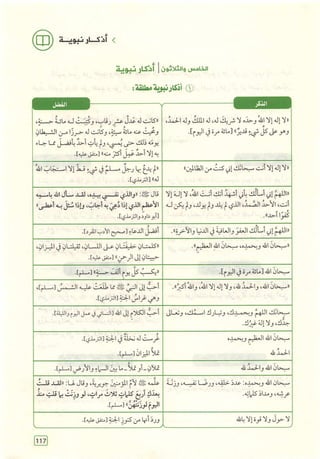 أذكـار نبويـة
الخامس والثلاثون | أذكار نبوية
١ أذكار نبوية مطلقة:
الذكر
الفضل
«لا إله إلا الله وحده لا شريك له، له الملك وله الحمد،
وهو على كل شيء قدير» [مائة مرة في اليوم].
«كانت له عدل عشر رقاب، وكتبت له مائة حسنة،
ومحيت عنه مائة سيئة، وكانت له حرزا من الشيطان
يومه ذلك حتى يمسي، ولم يأت أحد بأفضل مما جاء
به إلا أحد عمل أكثر من» [متفق عليه].
«لا إله إلا أنت سبحانك إني كنت من الظالمين»
«لم يدع بها رجل مسلم في شيء قط إلا استجاب الله
له» [الترمذي].
«اللهم إني أسألك بأني أشهد أنك أنت الله، لا إله إلا
أنت، الأحد الصمد، الذي لم يلد ولم يولد، ولم يكن له
كفوا أحد».
قال ﷺ: «والذي نفسي بيده، لقد سأل الله باسمه
الأعظم الذي إذا دعي به أجاب، وإذا سئل به أعطى»
[أبو داود والترمذي].
«اللهم إني أسألك العفو والعافية في الدنيا والآخرة».
أفضل الدعاء
«سبحان الله وبحمده، سبحان الله العظيم».
«كلمتان خفيفتان على اللسان، ثقيلتان في الميزان،
حبيبتان إلى الرحمن» [متفق عليه].
سبحان الله [مائة مرة في اليوم].
«يكسب كل يوم ألف حسنة» [مسلم].
«سبحان الله، والحمد لله، ولا إله إلا الله، والله أكبر».
أحب إلى النبي ﷺ مما طلعت عليه الشمس [مسلم]،
وهي غراس الجنة [الترمذي].
سبحانك اللهم وبحمدك، وتبارك اسمك، وتعالى
جدك، ولا إله غيرك.
أحب الكلام إلى الله
سبحان الله العظيم وبحمده
غرست له نخلة في الجنة [الترمذي].
الحمد لله
تملأ الميزان [مسلم].
سبحان الله والحمد لله
تملآن -أو تملأ- ما بين السماء والأرض [مسلم].
سبحان الله وبحمده: عدد خلقه، ورضا نفسه، وزنة
عرشه، ومداد كلماته.
علمه ﷺ لأم المؤمنين جويرية، وقال لها: «لقد قلت
بعدك أربع كلمات ثلاث مرات، لو وزنت بما قلت منذ
اليوم لوزنتهن» [مسلم].
لا حول ولا قوة إلا بالله
أنها من كنوز الجنة [متفق عليه].
117